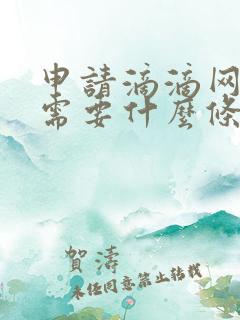 申請滴滴网
需要什麼條
賀濤
未經同意禁止轉載